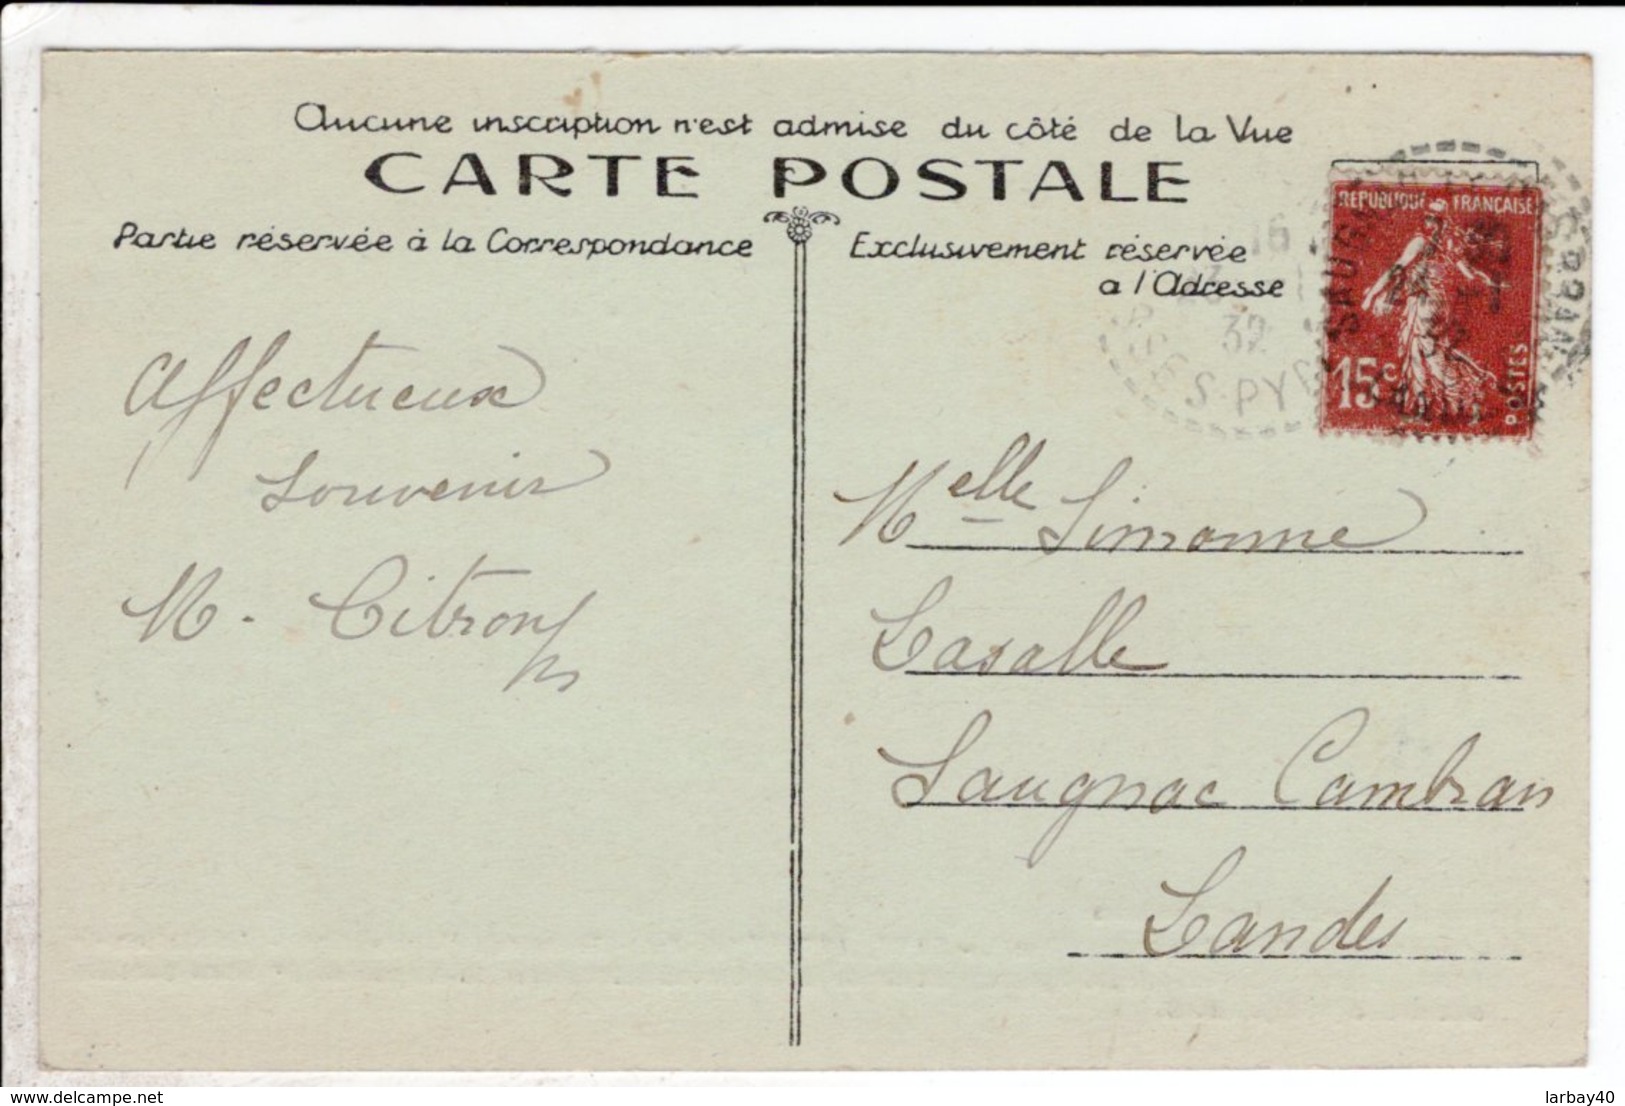 Aucune inscription n'est admise du côté de la Vue
CARTE POSTALE
Partie réservée à la Correspondance
Exclusivement réservée
a l'Adresse
REPUBLIQUE FRANÇAISE
15c
POSTES
16
32
S-PYR
24
32
SAUGNAC
LANDES
Affectueux
Souvenir
M. Citron
Melle Simonne
Lasalle
Saugnac Cambran
Landes
www.delcampe.net
larbay40